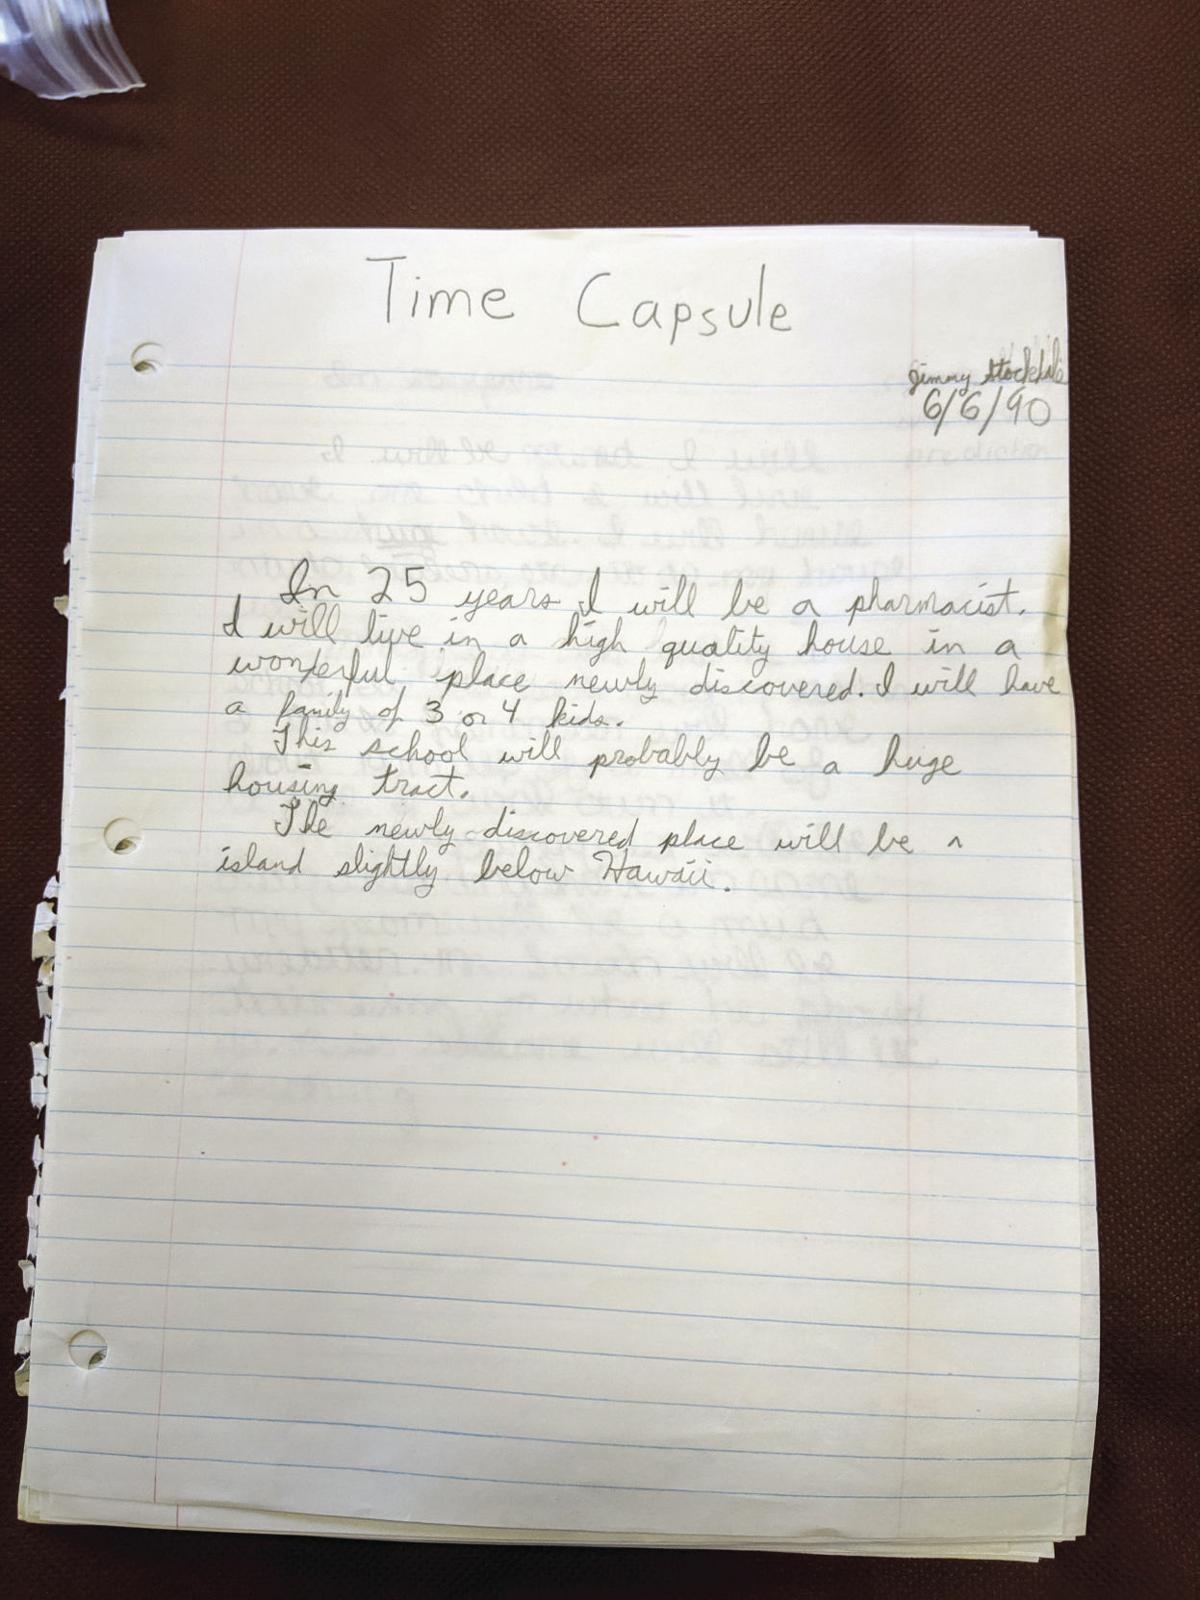 Time Capsule
Jimmy
6/6/90
In 25 years I will be a pharmacist.
I will live in a high quality house in a
wonferful place newly discovered. I will have
a family of 3 or 4 kids.
This school will probably be a huge
housing tract.
The newly discovered place will be a
island slightly below Hawaii.